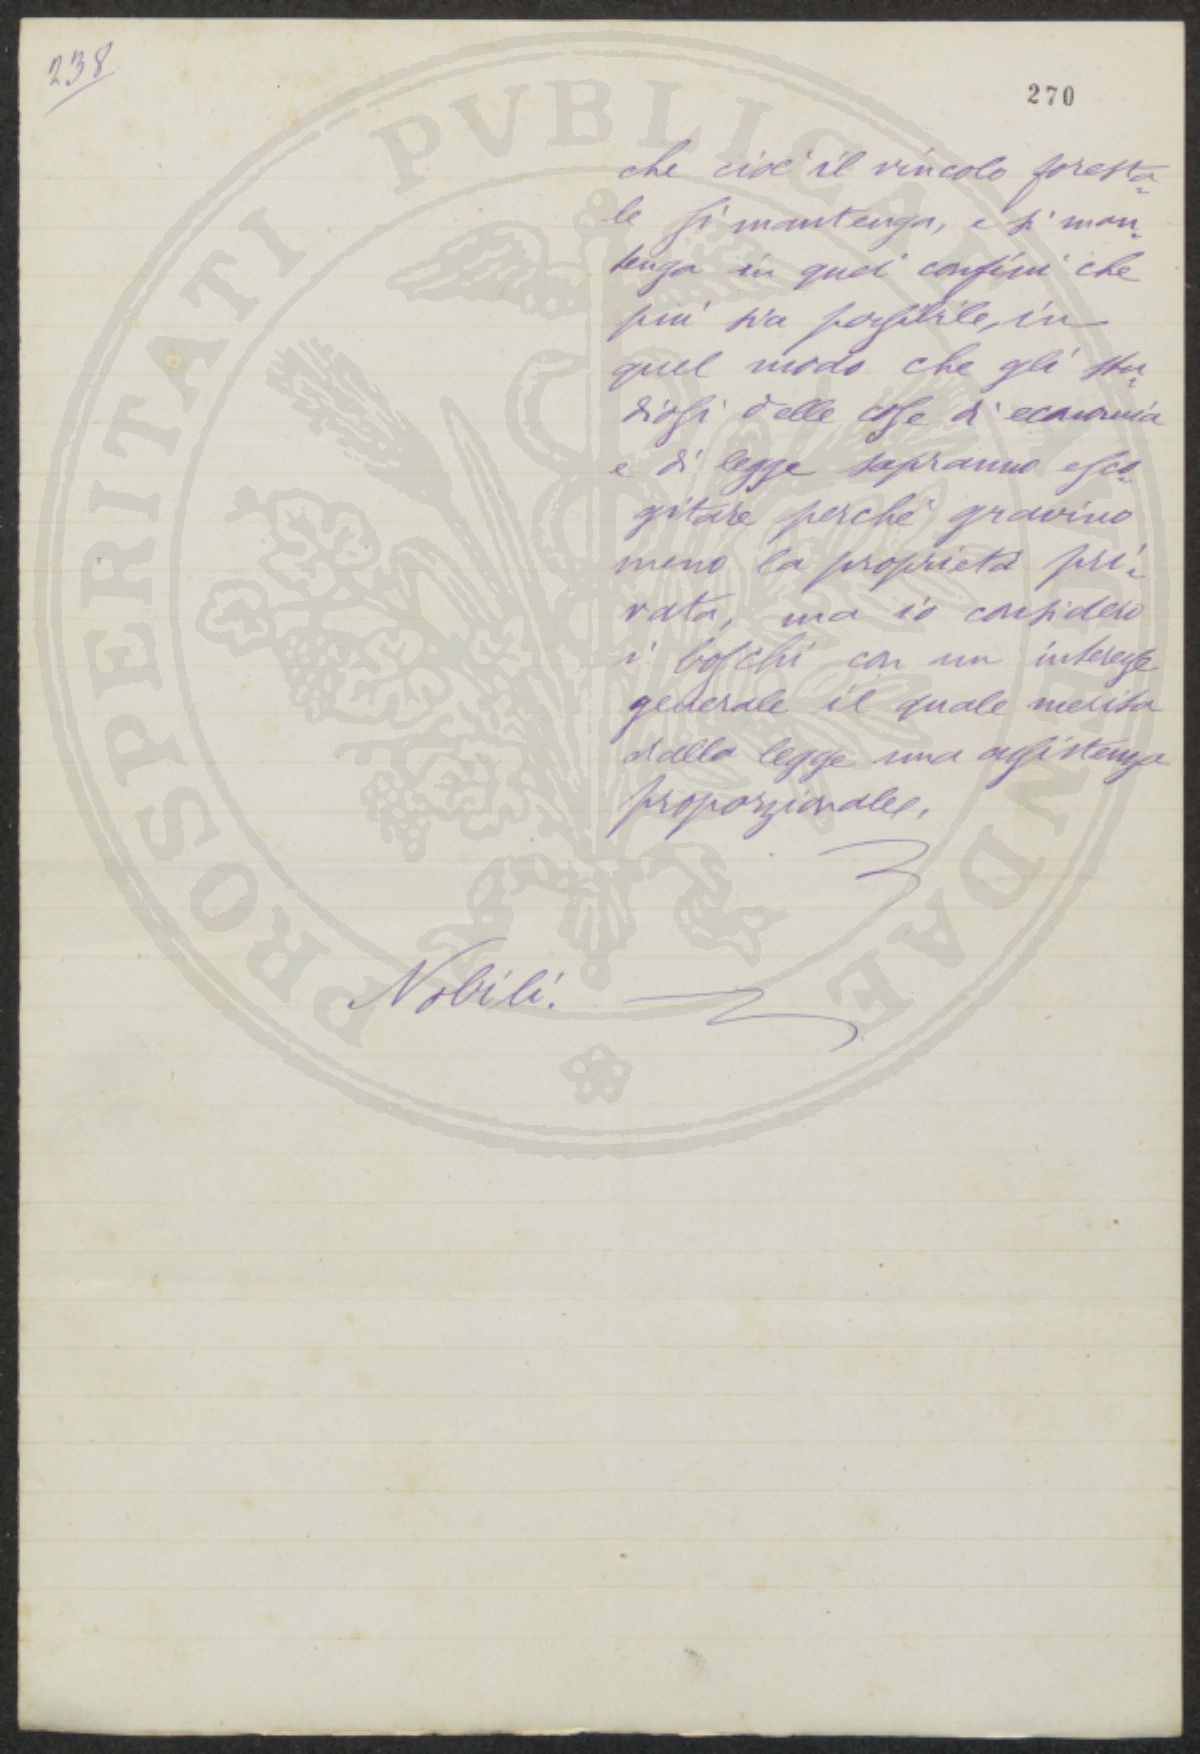 238
270
che cioè il vincolo foresta-
le si mantenga, e si man-
tenga in quei confini che
più sia possibile, in
quel modo che gli stu-
diosi delle cose di economia
e di legge sapranno esco-
gitare perché gravino
meno la proprietà pri-
vata, ma io considero
i boschi con un interesse
generale il quale merita
dalla legge una assistenza
proporzionale.
Nobili.
PROSPERITATI PVBLICAE AVGENDAE